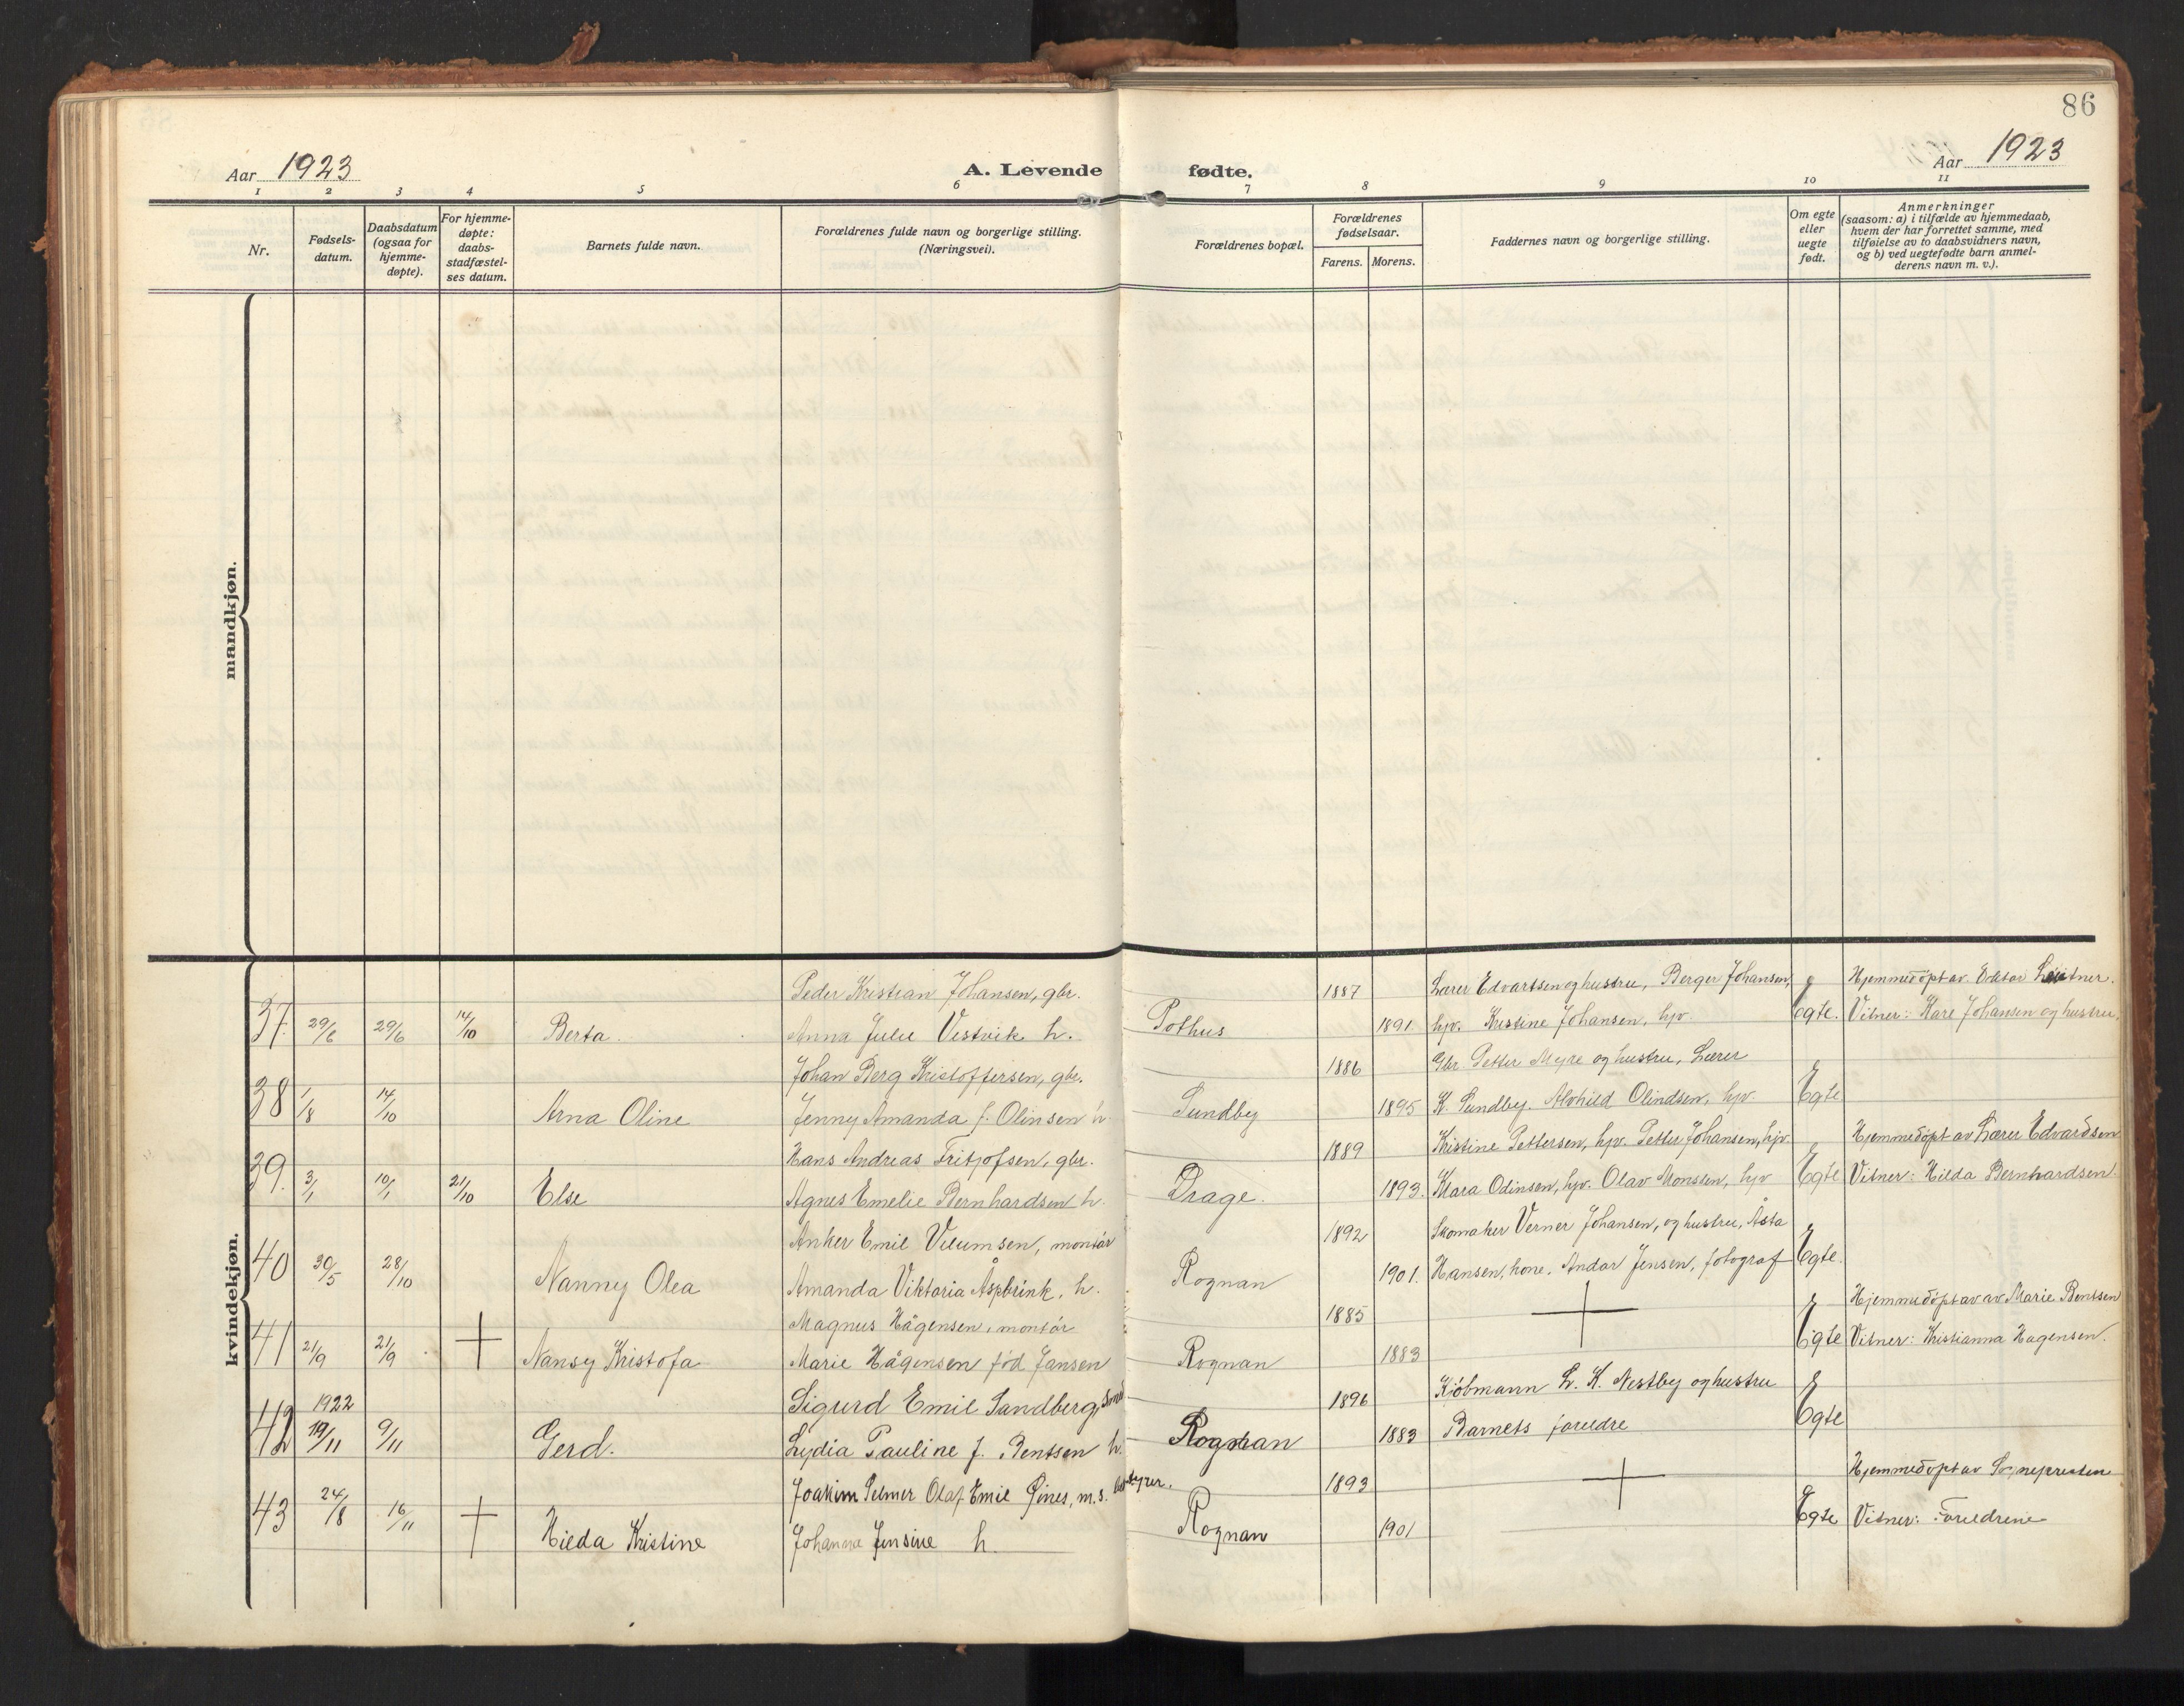 86
Aar 1923
A. Levende fødte.
Aar 1923
1 2 3 4 5 6 7 8 9 10 11
Nr.
Fødsels-
datum.
Daabsdatum
(ogsaa for
hjemme-
døpte).
For hjemme-
døpte:
daabs-
stadfæstel-
ses datum.
Barnets fulde navn.
Forældrenes fulde navn og borgerlige stilling.
(Næringsvei).
Forældrenes bopæl.
Forældrenes
fødselsaar.
Farens. Morens.
Faddernes navn og borgerlige stilling.
Om egte
eller
uegte
født.
Anmerkninger
(saasom: a) i tilfælde av hjemmedaab,
hvem der har forrettet samme, med
tilføielse av to daabsvidners navn,
og b) ved uegtefødte barn anmel-
derens navn m. v.).
mandkjøn.
kvindekjøn.
Peder Kristian Johansen, gbr. 1887 Lærer Edvartsen og hustru, Berger Johansen, Hjemmedöpt av Doktor Leitner.
37. 29/6 29/6 14/10 Berta Anna Julie Vestvik h. Pothus 1891. hjv. Kristine Johansen, hjv. Egte. Vitner: Kare Johansen og hustru.
Johan Berg Kristoffersen, gbr. 1886 Gbr Petter Myre og hustru, Lærer
38 1/8 14/10 Arna Oline Jenny Amanda f. Olinsen h. Sundby 1895 K. Sundby. Alvhild Olindsen, hjv. Egte
Hans Andreas Fritjofsen, gbr. 1889 Kristine Pettersen, hjv. Petter Johansen, hjv. Hjemmedöpt av Lærer Edvardsen
39. 3/1 10/1 21/10 Else Agnes Emelie Bernhardsen h. Drage. 1893. Mara Odinsen, hjv. Olav Monsen, hjv Egte Vitner: Hilda Bernhardsen
Anker Emil Vilumsen, montör 1892 Skomaker Verner Johansen, og hustru, Åsta
40 30/5 28/10 Nanny Olea Amanda Viktoria Åspbrink, h. Rognan 1901. Hansen, kone. Andor Jensen, fotograf Egte.
Magnus Hågensen, montör 1885 Hjemmedöpt av av Marie Bentsen
41 21/9 21/9 Nansy Kristofa Marie Hågensen fød Jansen Rognan 1883 Egte Vitner: Kristianna Hagensen.
1922 Sigurd Emil Sandberg, 1896 Kjöbmann L. K. Nestby og hustru
42 19/11 9/11 Gerd. Lydia Pauline f. Bentsen h. Rognan 1883 Barnets foreldre Egte
Joakim Selmer Olaf Emil Gines, m.s. bestyrer. 1893 Hjemmedöpt av Sognepresten
43 24/8 16/11 Hilda Kristine Johanna Jensine h. Rognan 1901 Egte Vitner: Foreldrene